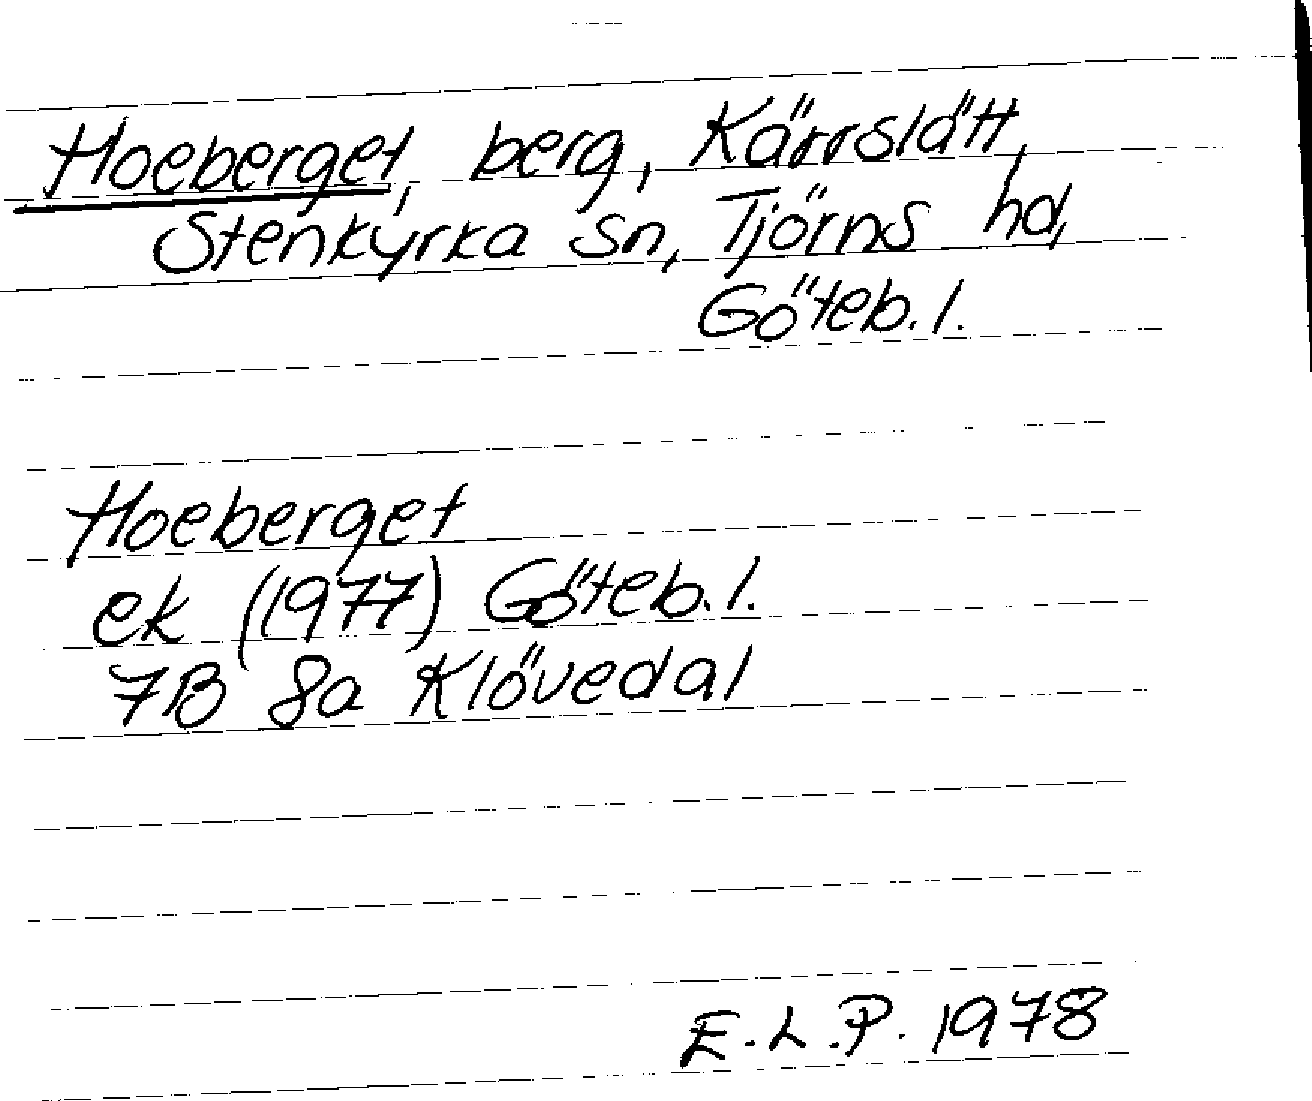 Hoeberget, berg, Kärrslätt,
Stenkyrka sn, Tjörns hd,
Göteb. l.
Hoeberget
ek (1977) Göteb. l.
7B 8a Klövedal
E.L.P. 1978